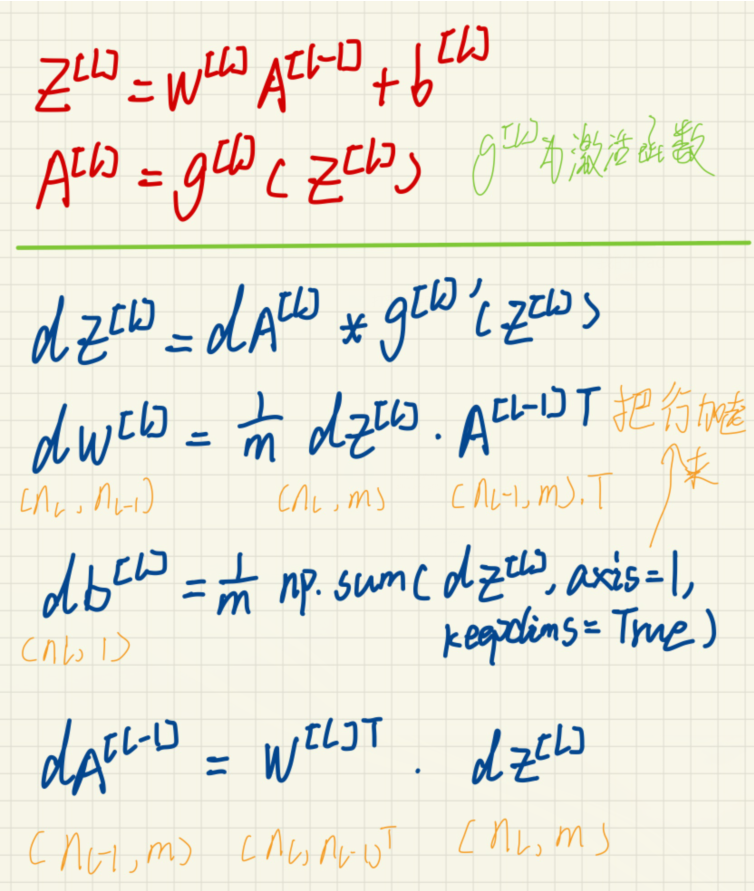 Z^[L] = W^[L] A^[L-1] + b^[L]
A^[L] = g^[L] ( Z^[L] )
g^[L]为激活函数
dZ^[L] = dA^[L] * g^[L]'( Z^[L] )
dW^[L] = 1/m dZ^[L] · A^[L-1]T
把行加起来
(n_L, n_L-1) (n_L, m) (n_L-1, m).T
db^[L] = 1/m np.sum( dZ^[L], axis=1,
keepdims=True )
(n_L, 1)
dA^[L-1] = W^[L]T · dZ^[L]
(n_L-1, m) (n_L, n_L-1)^T (n_L, m)